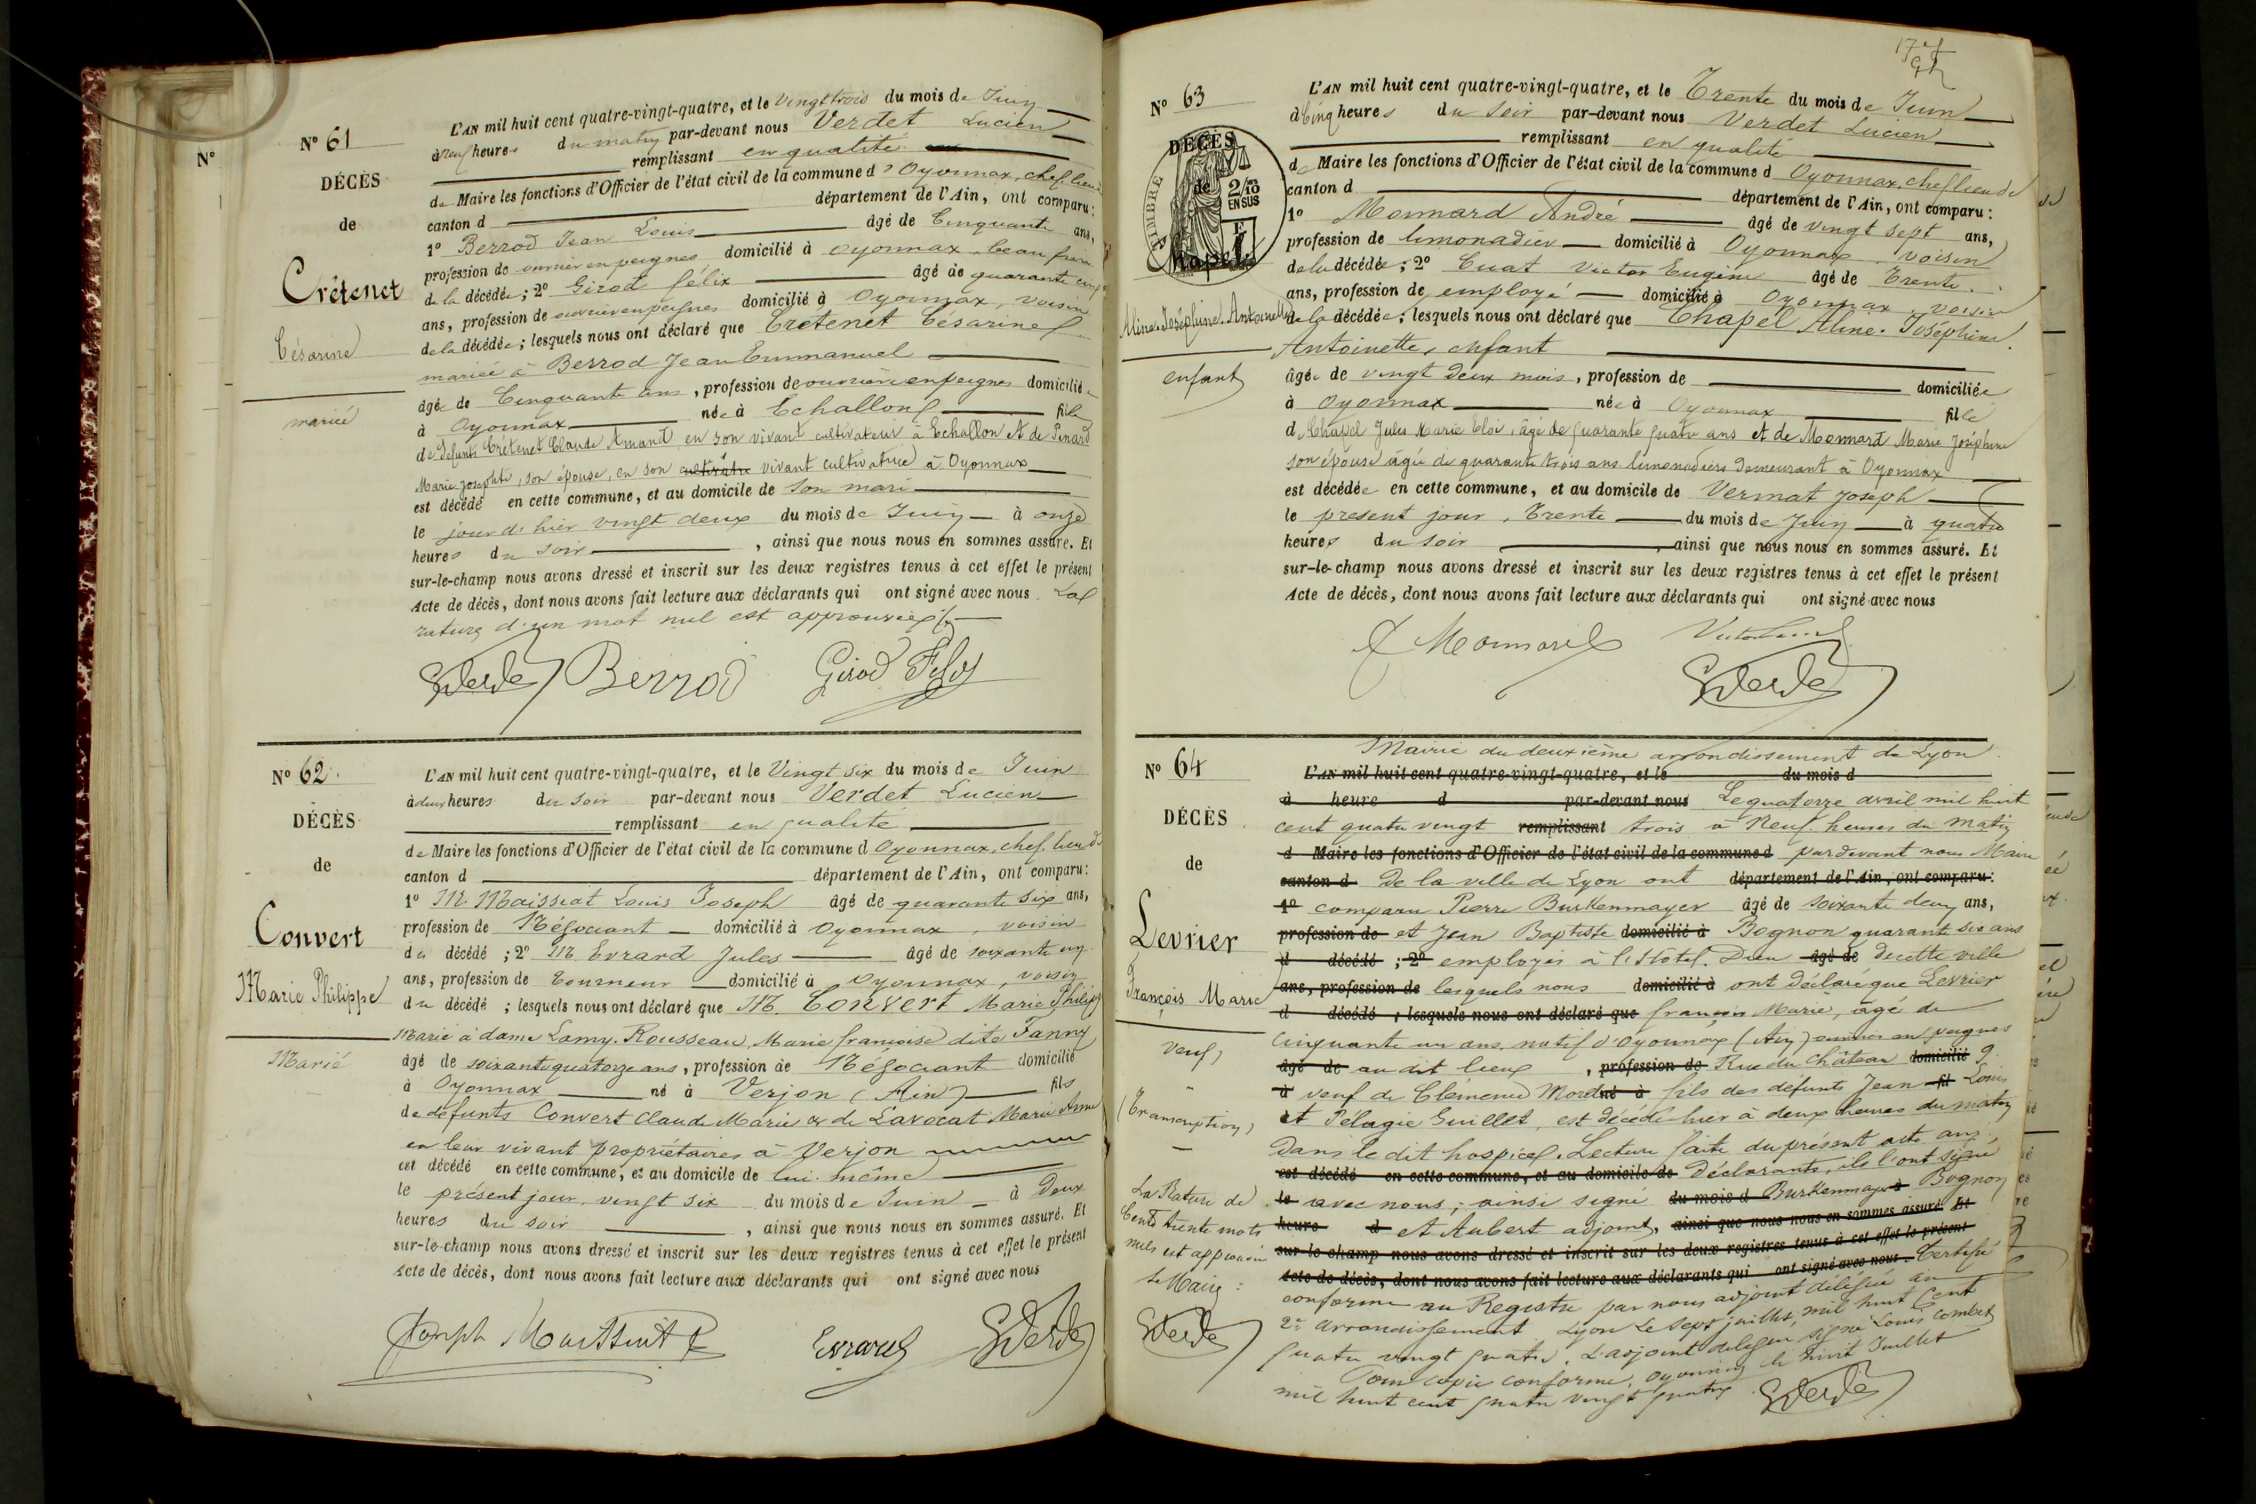 N°
N° 61
DÉCÈS
de
Crétenet
Césarine
mariée
L'AN mil huit cent quatre-vingt-quatre, et le Vingt trois du mois de Juin
à neuf heures du matin par-devant nous Verdet Lucien
remplissant en qualité
de Maire les fonctions d'Officier de l'état civil de la commune d'Oyonnax, chef lieu de
canton d département de l'Ain, ont comparu :
1° Berrod Jean Louis âgé de Cinquante ans,
profession de ouvrier en peignes domicilié à Oyonnax beau frère
de la décédée ; 2° Girod félix âgé de quarante cinq
ans, profession de ouvrier en peignes domicilié à Oyonnax, voisin
de la décédée ; lesquels nous ont déclaré que Crétenet Césarine
mariée à Berrod Jean Emmanuel
âgée de Cinquante ans, profession de ouvrière en peignes domiciliée
à Oyonnax née à Echallon fille
de défunts Crétenet Claude Amand en son vivant cultivateur à Echallon et de Penard
Marie Josephte, son épouse, en son cultivatre vivant cultivatrice à Oyonnax
est décédé en cette commune, et au domicile de son mari
le jour d'hier vingt deux du mois de Juin à onze
heures du soir, ainsi que nous nous en sommes assuré. Et
sur-le-champ nous avons dressé et inscrit sur les deux registres tenus à cet effet le présent
Acte de décès, dont nous avons fait lecture aux déclarants qui ont signé avec nous. La
rature d'un mot nul est approuvée
Verdet Berrod Girod Félix
N° 62
DÉCÈS
de
Convert
Marie Philippe
Marié
L'AN mil huit cent quatre-vingt-quatre, et le Vingt six du mois de Juin
à deux heures du soir par-devant nous Verdet Lucien
remplissant en qualité
de Maire les fonctions d'Officier de l'état civil de la commune d Oyonnax, chef lieu de
canton d département de l'Ain, ont comparu :
1° M. Maissiat Louis Joseph âgé de quarante six ans,
profession de Négociant domicilié à Oyonnax voisin
du décédé ; 2° M. Evrard Jules âgé de soixante un
ans, profession de tourneur domicilié à Oyonnax, voisin
du décédé ; lesquels nous ont déclaré que M. Convert Marie Philippe
Marié à dame Lamy. Rousseau, Marie françoise dite Fanny
âgé de soixante quatorze ans, profession de Négociant domicilié
à Oyonnax né à Verjon (Ain) fils
de défunts Convert Claude Marie & de Lavocat Marie Anne
en leur vivant propriétaires à Verjon
est décédé en cette commune, et au domicile de lui-même
le présent jour vingt six du mois de Juin à Deux
heures du soir, ainsi que nous nous en sommes assuré. Et
sur-le-champ nous avons dressé et inscrit sur les deux registres tenus à cet effet le présent
Acte de décès, dont nous avons fait lecture aux déclarants qui ont signé avec nous
Joseph Maissiat Evrard Verdet
N° 63
DÉCÈS
de
TIMBRE
2/10
EN SUS
Chapel
Aline. Joséphine. Antoinette
enfant
L'AN mil huit cent quatre-vingt-quatre, et le Trente du mois de Juin
à Cinq heures du soir par-devant nous Verdet Lucien
remplissant en qualité
de Maire les fonctions d'Officier de l'état civil de la commune d Oyonnax, chef lieu de
canton d département de l'Ain, ont comparu :
1° Monnard André âgé de vingt sept ans,
profession de limonadier domicilié à Oyonnax voisin
de la décédée ; 2° Cuat Victor Eugène âgé de Trente
ans, profession de employé domicilié à Oyonnax voisin
de la décédée ; lesquels nous ont déclaré que Chapel Aline. Joséphine.
Antoinette, enfant
âgée de vingt deux mois, profession de domiciliée
à Oyonnax née à Oyonnax fille
de Chapel Jules Marie Eloi, âgé de quarante quatre ans et de Monnard Marie Joséphine
son épouse âgée de quarante trois ans limonadiers demeurant à Oyonnax
est décédée en cette commune, et au domicile de Vermat Joseph
le present jour, Trente du mois de Juin à quatre
heures du soir, ainsi que nous nous en sommes assuré. Et
sur-le-champ nous avons dressé et inscrit sur les deux registres tenus à cet effet le présent
Acte de décès, dont nous avons fait lecture aux déclarants qui ont signé avec nous
Monnard Victor
Verdet
N° 64
DÉCÈS
de
Levrier
François Marie
veuf
(Transcription)
La Rature de
Cent trente mots
nuls est approuvée
Le Maire :
Verdet
Mairie du deuxième arrondissement de Lyon
L'AN mil huit cent quatre-vingt-quatre, et le du mois d
à heure d par-devant nous Le quatorze avril mil huit
cent quatre vingt remplissant trois à Neuf heures du matin
d Maire les fonctions d'Officier de l'état civil de la commune d pardevant nous Maire
canton d De la ville de Lyon ont département de l'Ain, ont comparu :
1° comparu Pierre Burkenmayer âgé de soixante deux ans,
profession de et Jean Baptiste domicilié à Bognon quarante six ans
d décédé ; 2° employés à l'Hôtel. Dieu âgé de de cette ville
ans, profession de lesquels nous domicilié à ont déclaré que Levrier
d décédé ; lesquels nous ont déclaré que françois Marie, âgé de
Cinquante un ans, natif d'Oyonnax (Ain) ouvrier en peignes
âgé de au dit lieu, profession de Rue du Château domicilié 9
à veuf de Clémence Morel né à fils des défunts Jean fil Louis
et Pélagie Guillet, est décédé hier à deux heures du matin
dans le dit hospice. Lecture faite du présent acte aux
est décédé en cette commune, et au domicile de déclarants, ils l'ont signé
le avec nous ; ainsi signé du mois d Burkenmayer à Bognon
heure d et Aubert adjoint, ainsi que nous nous en sommes assuré. Et
sur-le-champ nous avons dressé et inscrit sur les deux registres tenus à cet effet le présent
Acte de décès, dont nous avons fait lecture aux déclarants qui ont signé avec nous. Certifié
conforme au Registre par nous adjoint délégué au
2e arrondissement Lyon Le sept juillet, mil huit cent
quatre vingt quatre. L'adjoint délégué signé Louis Combet
Pour copie conforme, Oyonnax le huit Juillet
mil huit cent quatre vingt quatre
Verdet